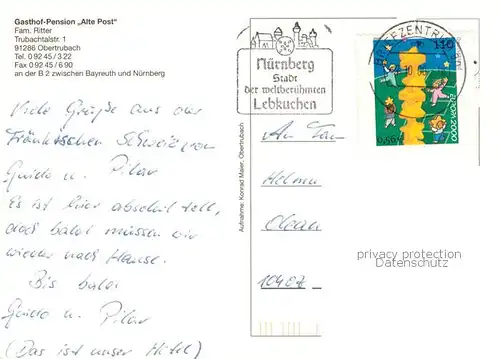 Gasthof-Pension „Alte Post“
Fam. Ritter
Trubachtalstr. 1
91286 Obertrubach
Tel. 0 92 45 / 3 22
Fax 0 92 45 / 6 90
an der B 2 zwischen Bayreuth und Nürnberg
Viele Grüße aus der
Fränkischen Schweiz von
Guido u. Pilar
Es ist hier absolut toll,
doch bald müssen wir
wieder nach Hause.
Bis bald
Guido u. Pilar
(Das ist unser Hotel)
Aufnahme: Konrad Maier, Obertrubach
Nürnberg
Stadt
der weltberühmten
Lebkuchen
BRIEFZENTRUM
110
0,56 €
EUROPA 2000
An Fam.
Helmu
10407
privacy protection
Datenschutz